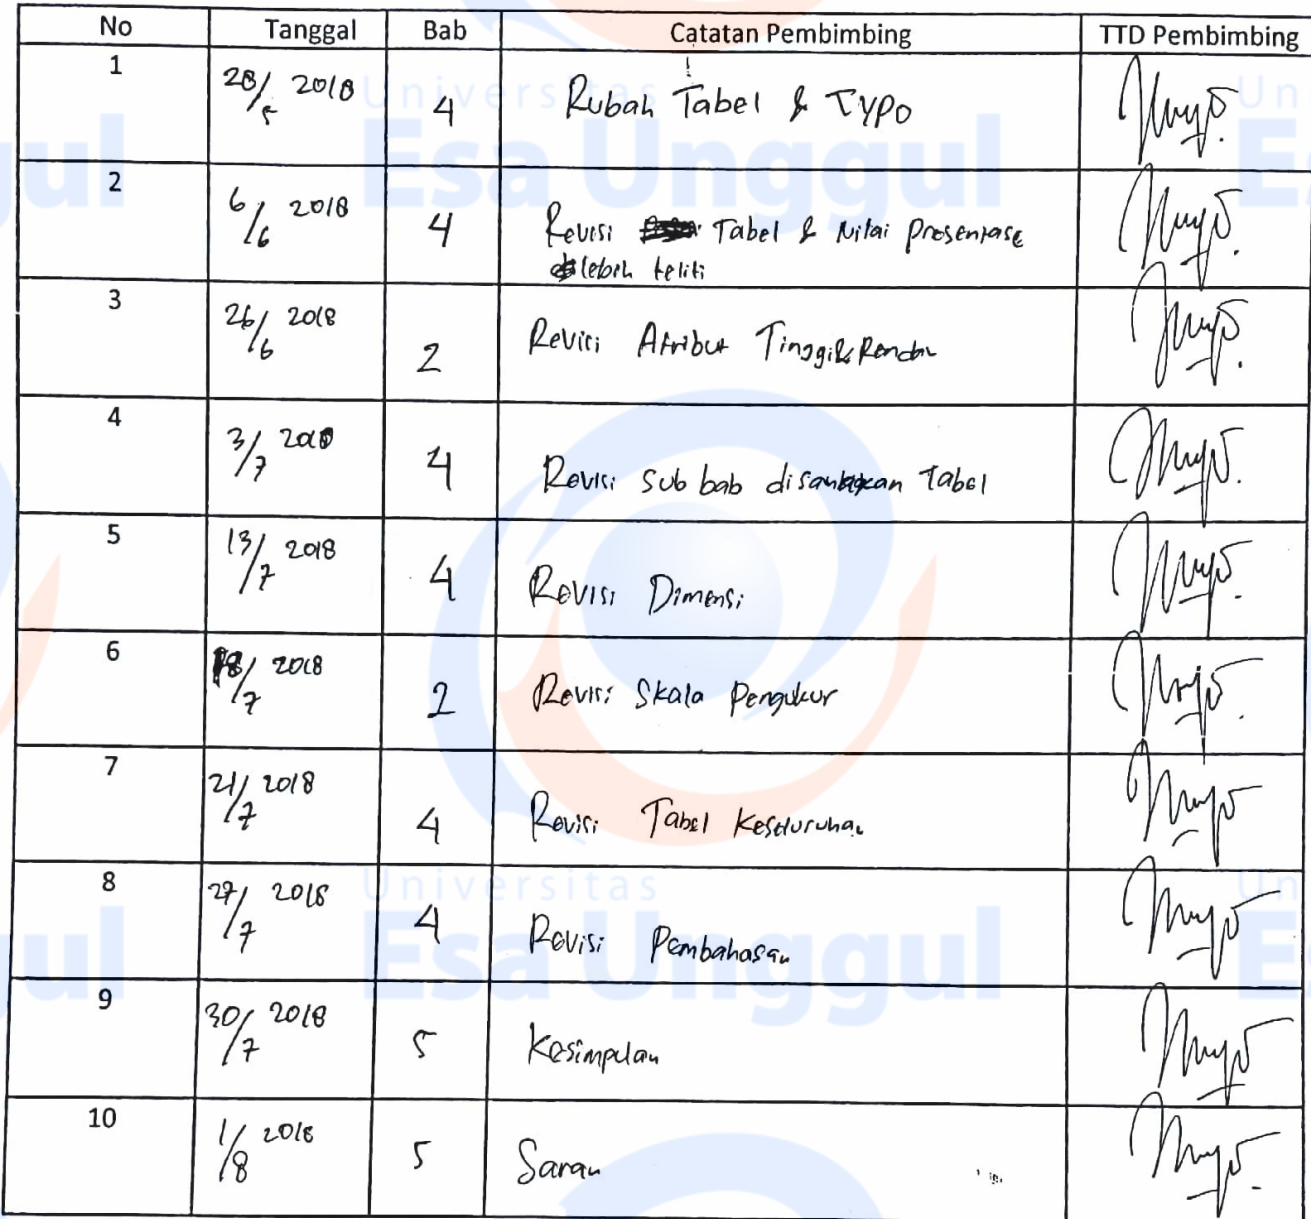 No Tanggal Bab Catatan Pembimbing TTD Pembimbing
1 28/5 2018 4 Rubah Tabel & Typo
2 6/6 2018 4 Revisi Tabel & Nilai Prosentase
lebih teliti
3 26/6 2018 2 Revisi Atribut Tinggi & Rendah
4 3/7 2018 4 Revisi Sub bab Tabel
5 13/7 2018 4 Revisi Dimensi
6 18/7 2018 2 Revisi Skala Pengukur
7 21/7 2018 4 Revisi Tabel Keseluruhan
8 27/7 2018 4 Revisi Pembahasan
9 30/7 2018 5 Kesimpulan
10 1/8 2018 5 Saran
Universitas
Esa Unggul
Universitas
Esa Unggul